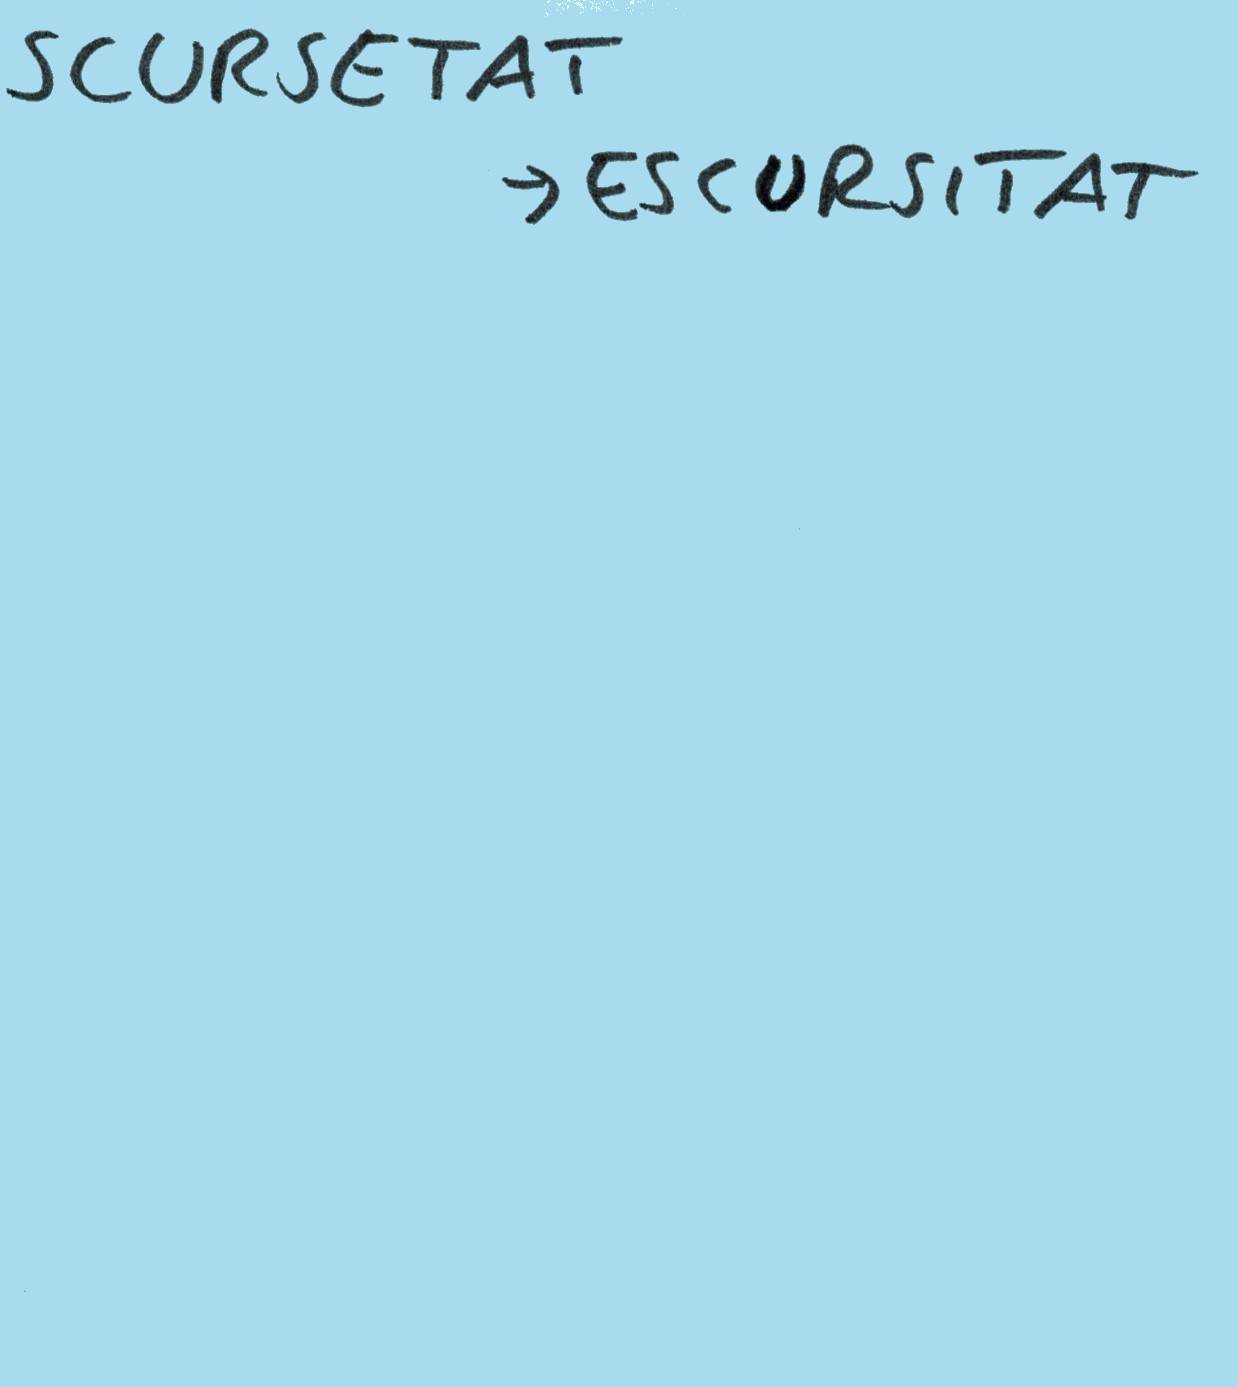 SCURSETAT
→ ESCURSITAT